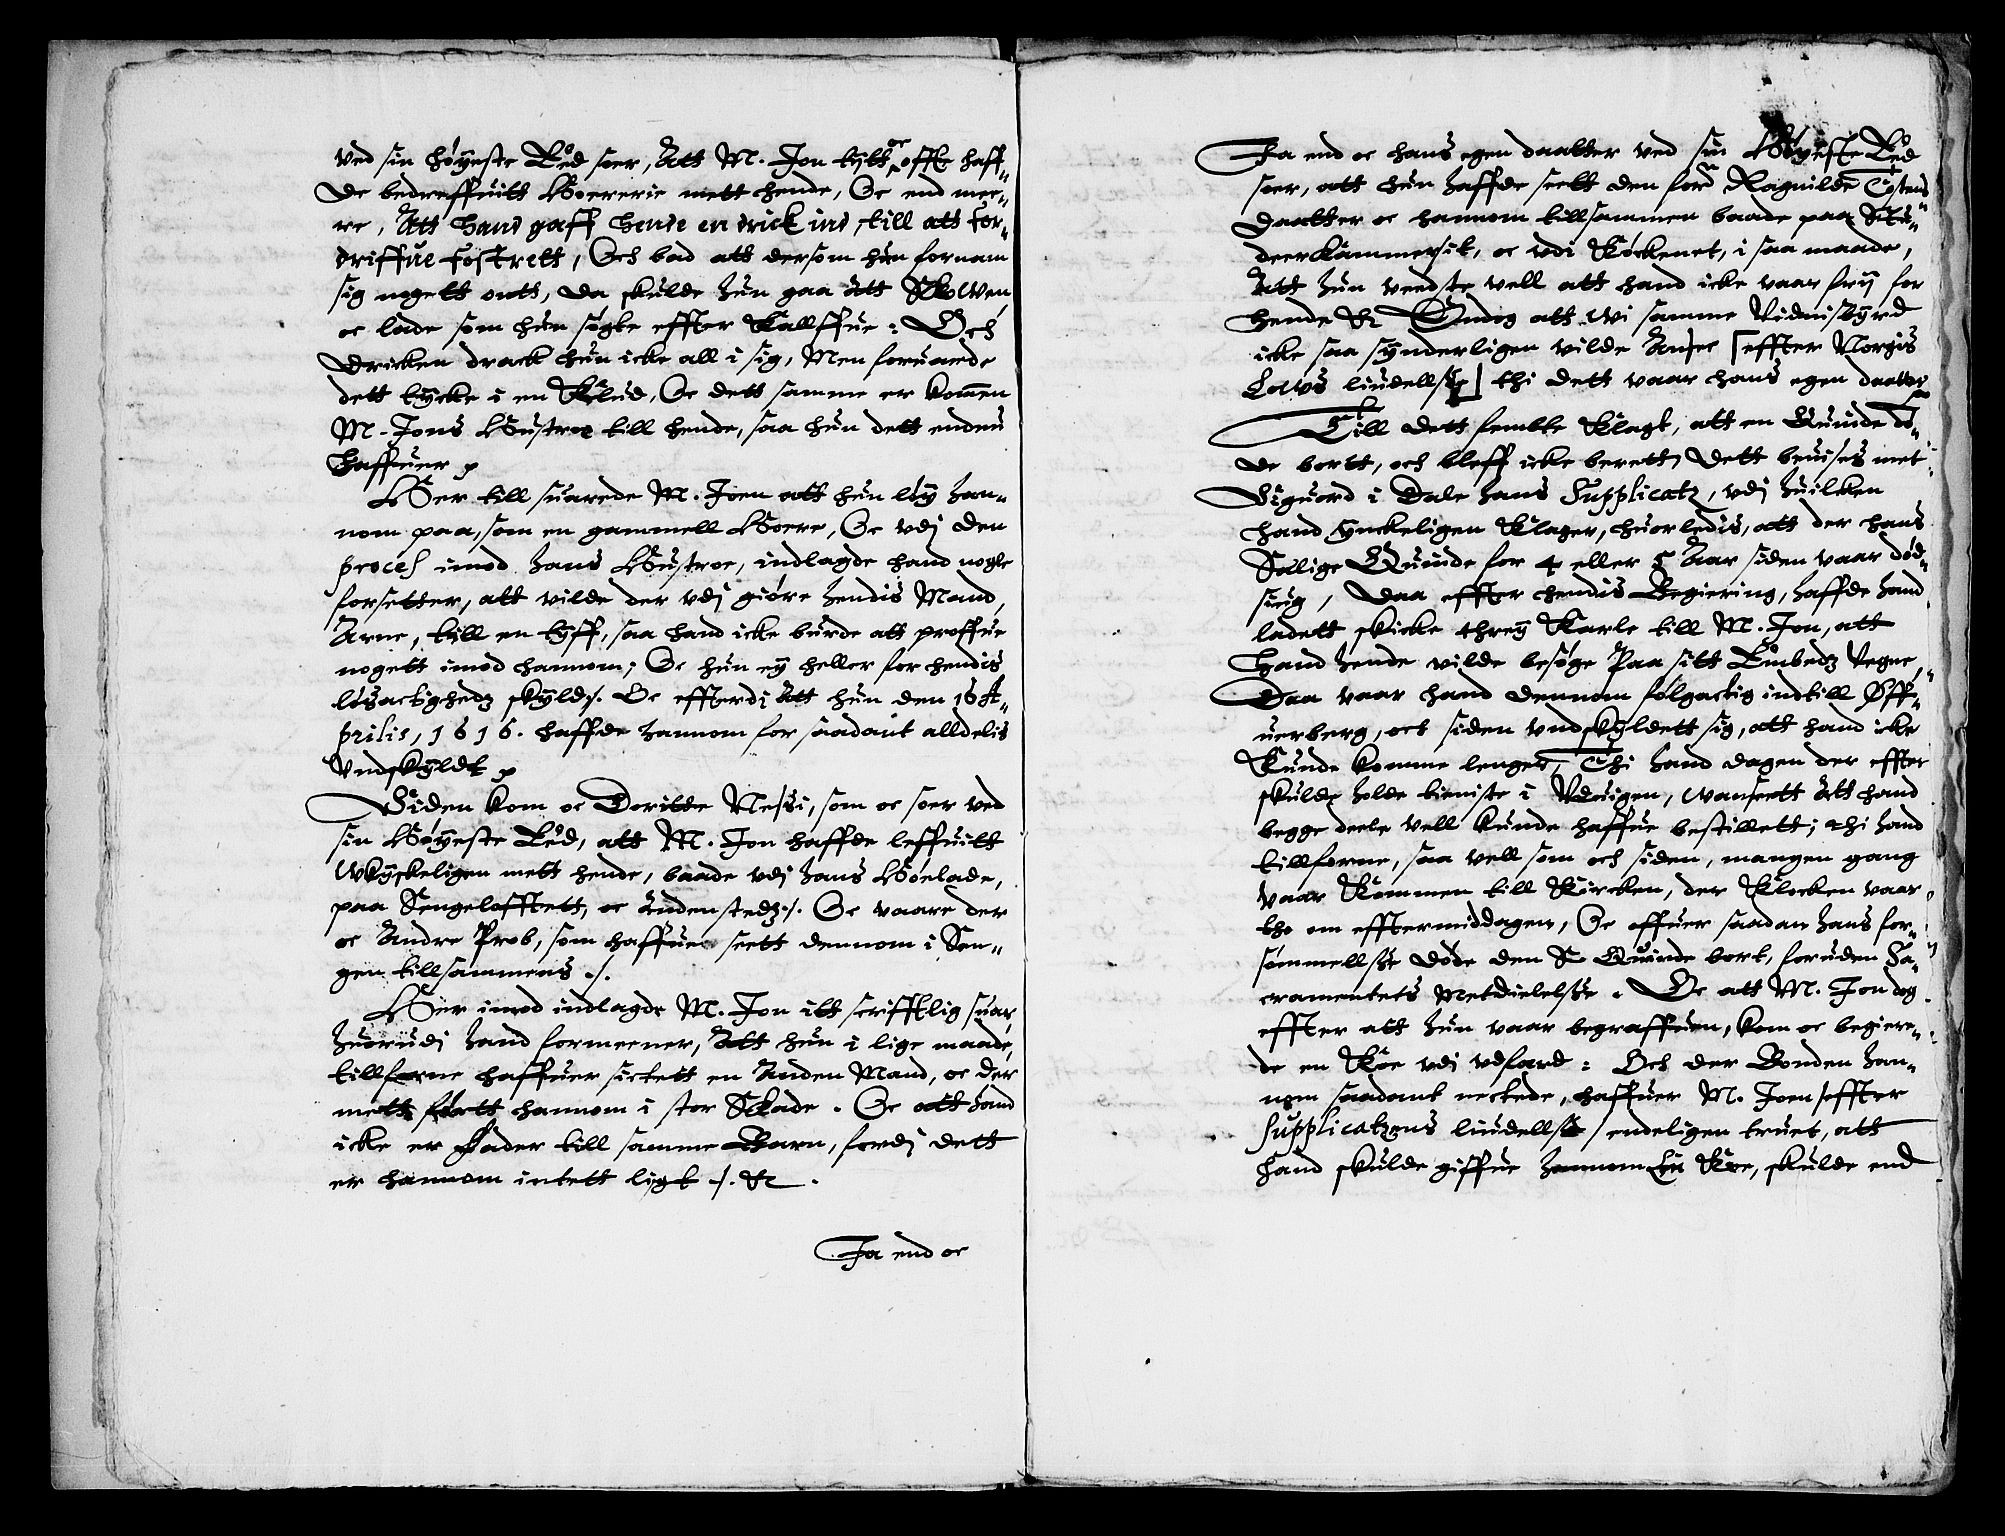 ved sin høyeste Eed soer, Att M. Jon tytt oc offte haff„
de bedreffuitt Hoererie mett hende, Oc end mee„
re, Att hand gaff hende en drick ind, till att for„
driffue Fostrett, Och bad att dersom hun fornam
sig nogett ontt, da skulde hun gaa Att Skowen
oc lade som hun søgte effter Kallffue: Och
dricken drack hun icke all i sig, Men foruarde
dett tycke i en Klud, Oc dett samme er kommen
M. Jons Hustroe till hende, saa hun dett endnu
haffuer
Her till suarede M. Joen att hun løy han„
nom paa, som en gammell Hoere, Oc vdj den
proces imod hans Hustroe, indlagde hand nogle
forsetter, att vilde der vdj giøre hendis Mand,
Arne, till en tyff, saa hand icke burde att proffue
nogett imod hannom; Oc hun ey heller for hendis
løsactighedz skyld ./. Oc effterdi Att hun den 16 A„
prilis, 1616. haffde hannom for saadant alldelis
Vndskyldt
Siden kom oc Torilde Nessi, som oc soer ved
sin Høyeste Eed, att M. Jon haffde leffuitt
Wkyskeligen mett hende, baade vdj hans Høelade,
paa Sengelofftett, oc Andenstedz ./. Oc vaare der
oc Andre Prob, som haffuer seett dennom i Sen„
gen tillsammens ./.
Her imod indlagde M. Jon itt scrifftlig suar,
huorudj hand formeener, Att hun i lige maade,
tillforne haffuer sictett en Anden Mand, oc der
mett førtt hannom i stor Skade. Oc att hand
icke er Fader till samme Barn, fordj dett
er hannom intett ligt ./. &c.
Ja end oc
Ja end oc hans egen daatter ved sin Høyeste Eed
soer, att hun haffde seett den ford Ragnilde Tostens
daatter oc hannom tillsammen baade paa Stu„
deerkammersit, oc vdi Køckenet, i saa maade,
Att hun veedste vell att hand icke vaar fry for
hende &c. Endog att wi samme Vidnisbyrd
icke saa synderligen vilde Ansee [effter Norgis
Lows liudellse] thi dett vaar hans egen daatter
Till dett fembte Klagt, att en Quinde dø„
de bortt, och bleff icke berett, Dett beuises met
Siguord i Dale hans Supplicatz, vdj huilcken
hand ynckeligen Klager, huorledis, att der hans
Salige Quinde for 4 eller 5 Aar siden vaar død„
siug, Daa effter hendis Begiering, haffde hand
ladett skicke threy Karle till M. Jon, att
hand hende vilde besøge Paa sitt Embedz Vegne,
Daa vaar hand dennom følgactig indtill Øff„
uerberg, oct siden vndskyldett sig, att hand icke
Kunde komme lenger, Thi hand dagen der effter
skulde holde tieniste i Vduigen, wanseett Att hand
begge deele vell kunde haffue bestillett; thi hand
tillforne, saa vell som och siden, mangen gang
vaar Kommen till Kircken, der Klocken vaar
tho om efftermiddagen, Oc offuer saadan hans for„
sømmellsse døde den S. Quinde bort, foruden Sa„
cramentets Metdielelsse. Oc att M. Jon dog
effter att hun vaar begraffuen, kom oc begiere„
de en Koe vdj vdfard: Och der Bonden han„
nom saadant nectede, haffuer M. Joen /effter
Supplicatzens liudellse/ endeligen truet, att
hand skulde giffue hannom En Koe, skulde end